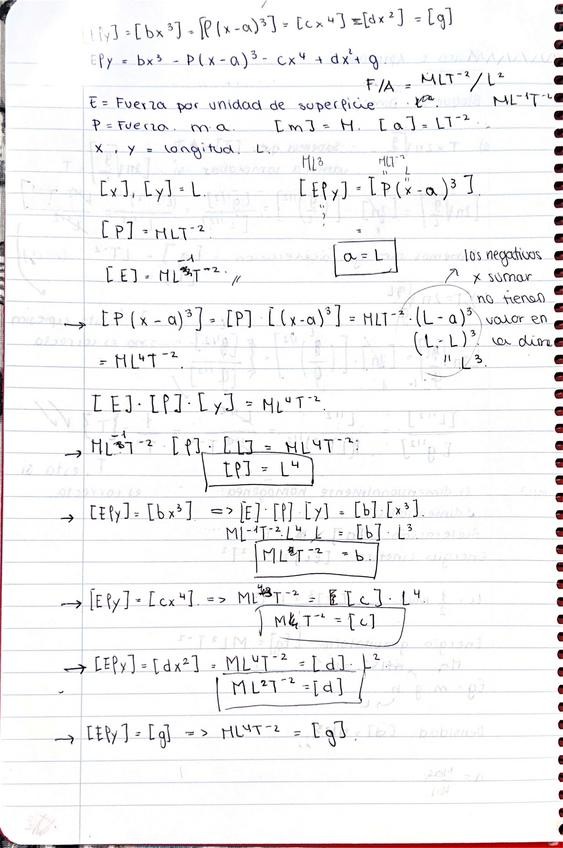 [Py] = [bx³] = [P(x-a)³] = [cx⁴] = [dx²] = [g]
EPy = bx³ - P(x-a)³ - cx⁴ + dx² + g
F/A = MLT⁻²/L²
E = Fuerza por unidad de superficie ML⁻¹T⁻²
P = Fuerza. m.a. [m] = M. [a] = LT⁻².
x, y = longitud. L.
[x], [y] = L. [EPy] = [P(x-a)³].
[P] = MLT⁻².
a = L
[E] = ML⁻¹T⁻². //
los negativos
x sumar
no tienen
valor en
la dim
→ [P(x-a)³] = [P] [(x-a)³] = MLT⁻² · (L-a)³
(L-L)³
" L³.
= ML⁴T⁻².
[E] · [P] · [y] = ML⁴T⁻².
→ ML⁻¹T⁻² · [P] · [L] = ML⁴T⁻²;
[P] = L⁴
→ [EPy] = [bx³] => [E] · [P] · [y] = [b] · [x³].
ML⁻¹T⁻² · L⁴ · L = [b] · L³
MLT⁻² = b.
→ [EPy] = [cx⁴] => ML⁴T⁻² = [c] · L⁴.
MT⁻² = [c]
→ [EPy] = [dx²] = ML⁴T⁻² = [d] · L²
ML²T⁻² = [d]
→ [EPy] = [g] => ML⁴T⁻² = [g].